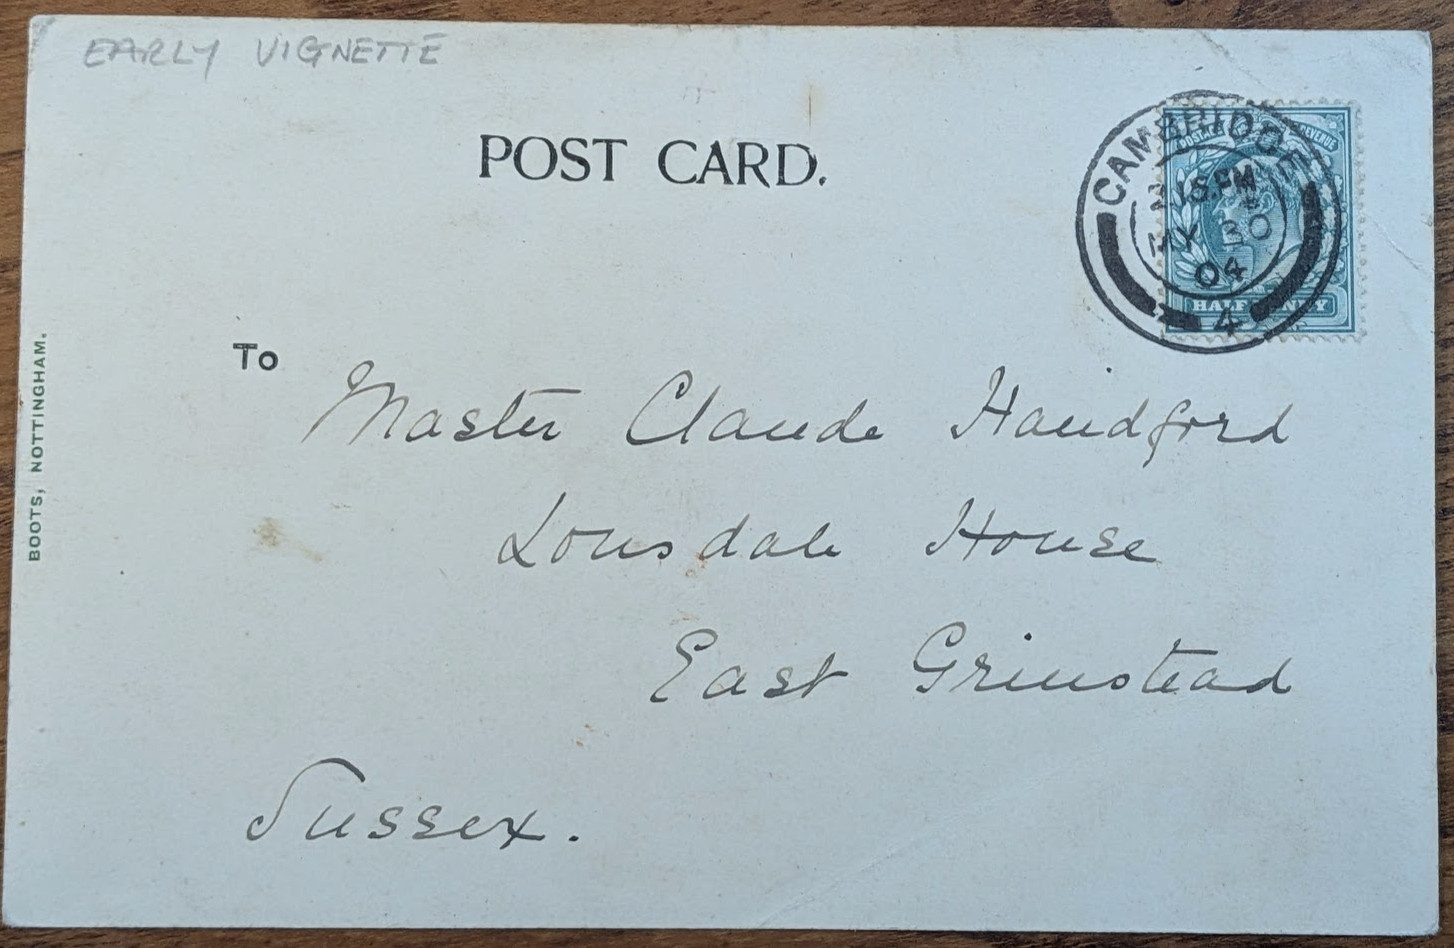 EARLY VIGNETTE
POST CARD.
CAMBRIDGE
MY 30
04
4
POSTAGE REVENUE
HALF PENNY
To
Master Claude Handford
Lonsdale House
East Grinstead
Sussex.
BOOTS, NOTTINGHAM.